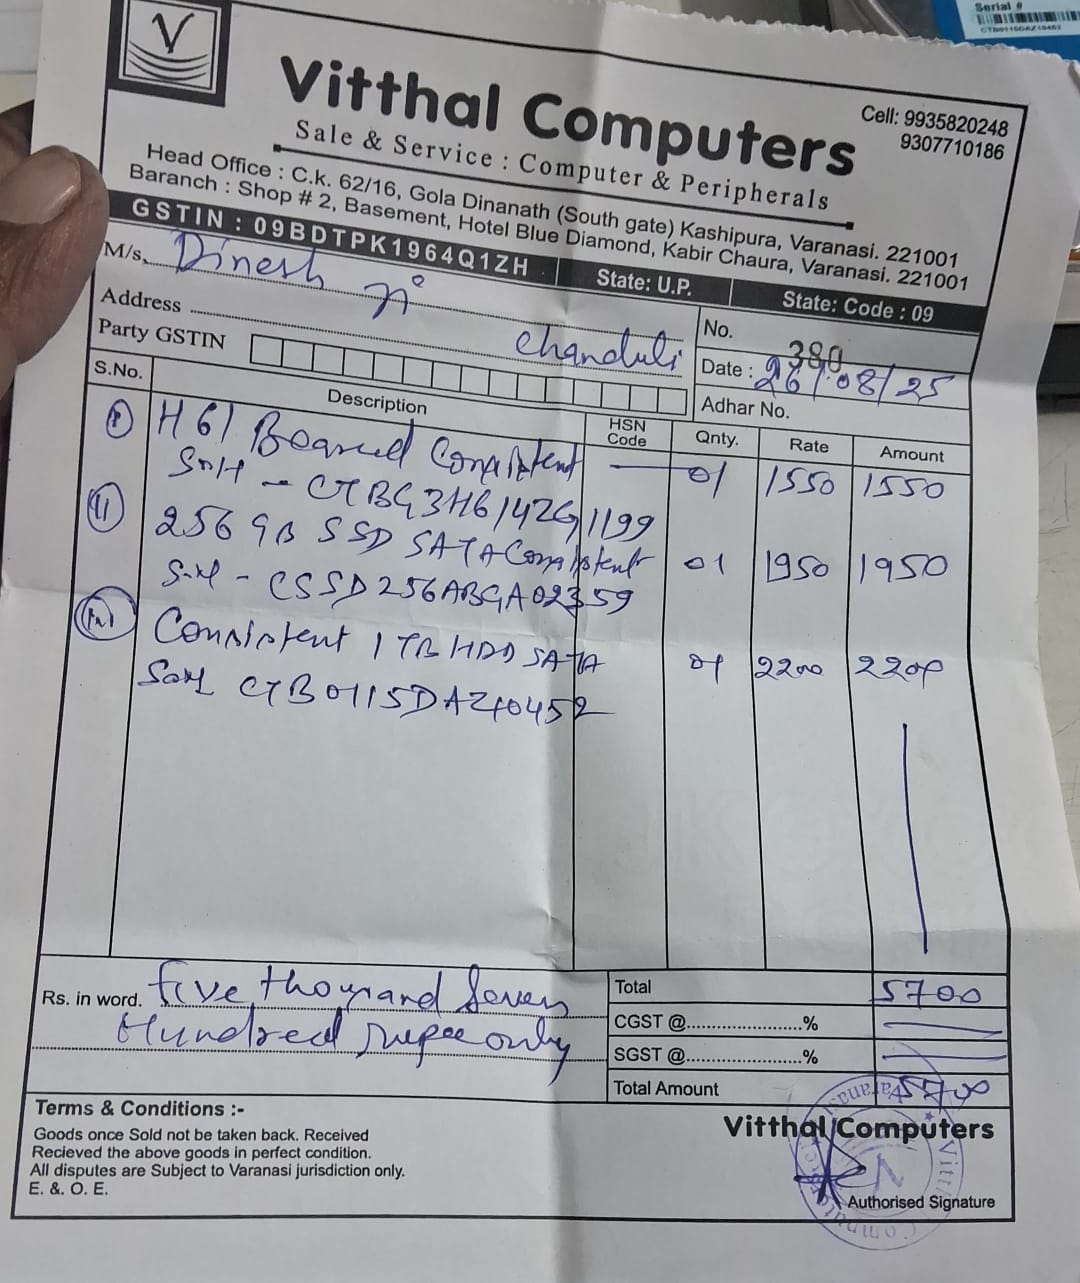 Serial #
V
Vitthal Computers
Cell: 9935820248
9307710186
Sale & Service : Computer & Peripherals
Head Office : C.k. 62/16, Gola Dinanath (South gate) Kashipura, Varanasi. 221001
Baranch : Shop # 2, Basement, Hotel Blue Diamond, Kabir Chaura, Varanasi. 221001
GSTIN : 09BDTPK1964Q1ZH State: U.P. State: Code : 09
M/s. Dinesh
Address chanduli
No. 380
Date : 26/08/25
Party GSTIN
Adhar No.
S.No. Description HSN Code Qnty. Rate Amount
H61 Consistent 01 1550 1550
256 GB SSD SATA Consistent 01 1950 1950
CSSD256ABGA02359
Consistent 1 TB HDD SATA 01 2200 2200
Rs. in word. five thousand Seven
Hundred rupee only
Total 5700
CGST @....................%
SGST @....................%
Total Amount 5700
Terms & Conditions :-
Goods once Sold not be taken back. Received
Recieved the above goods in perfect condition.
All disputes are Subject to Varanasi jurisdiction only.
E. & O. E.
Vitthal Computers
Authorised Signature